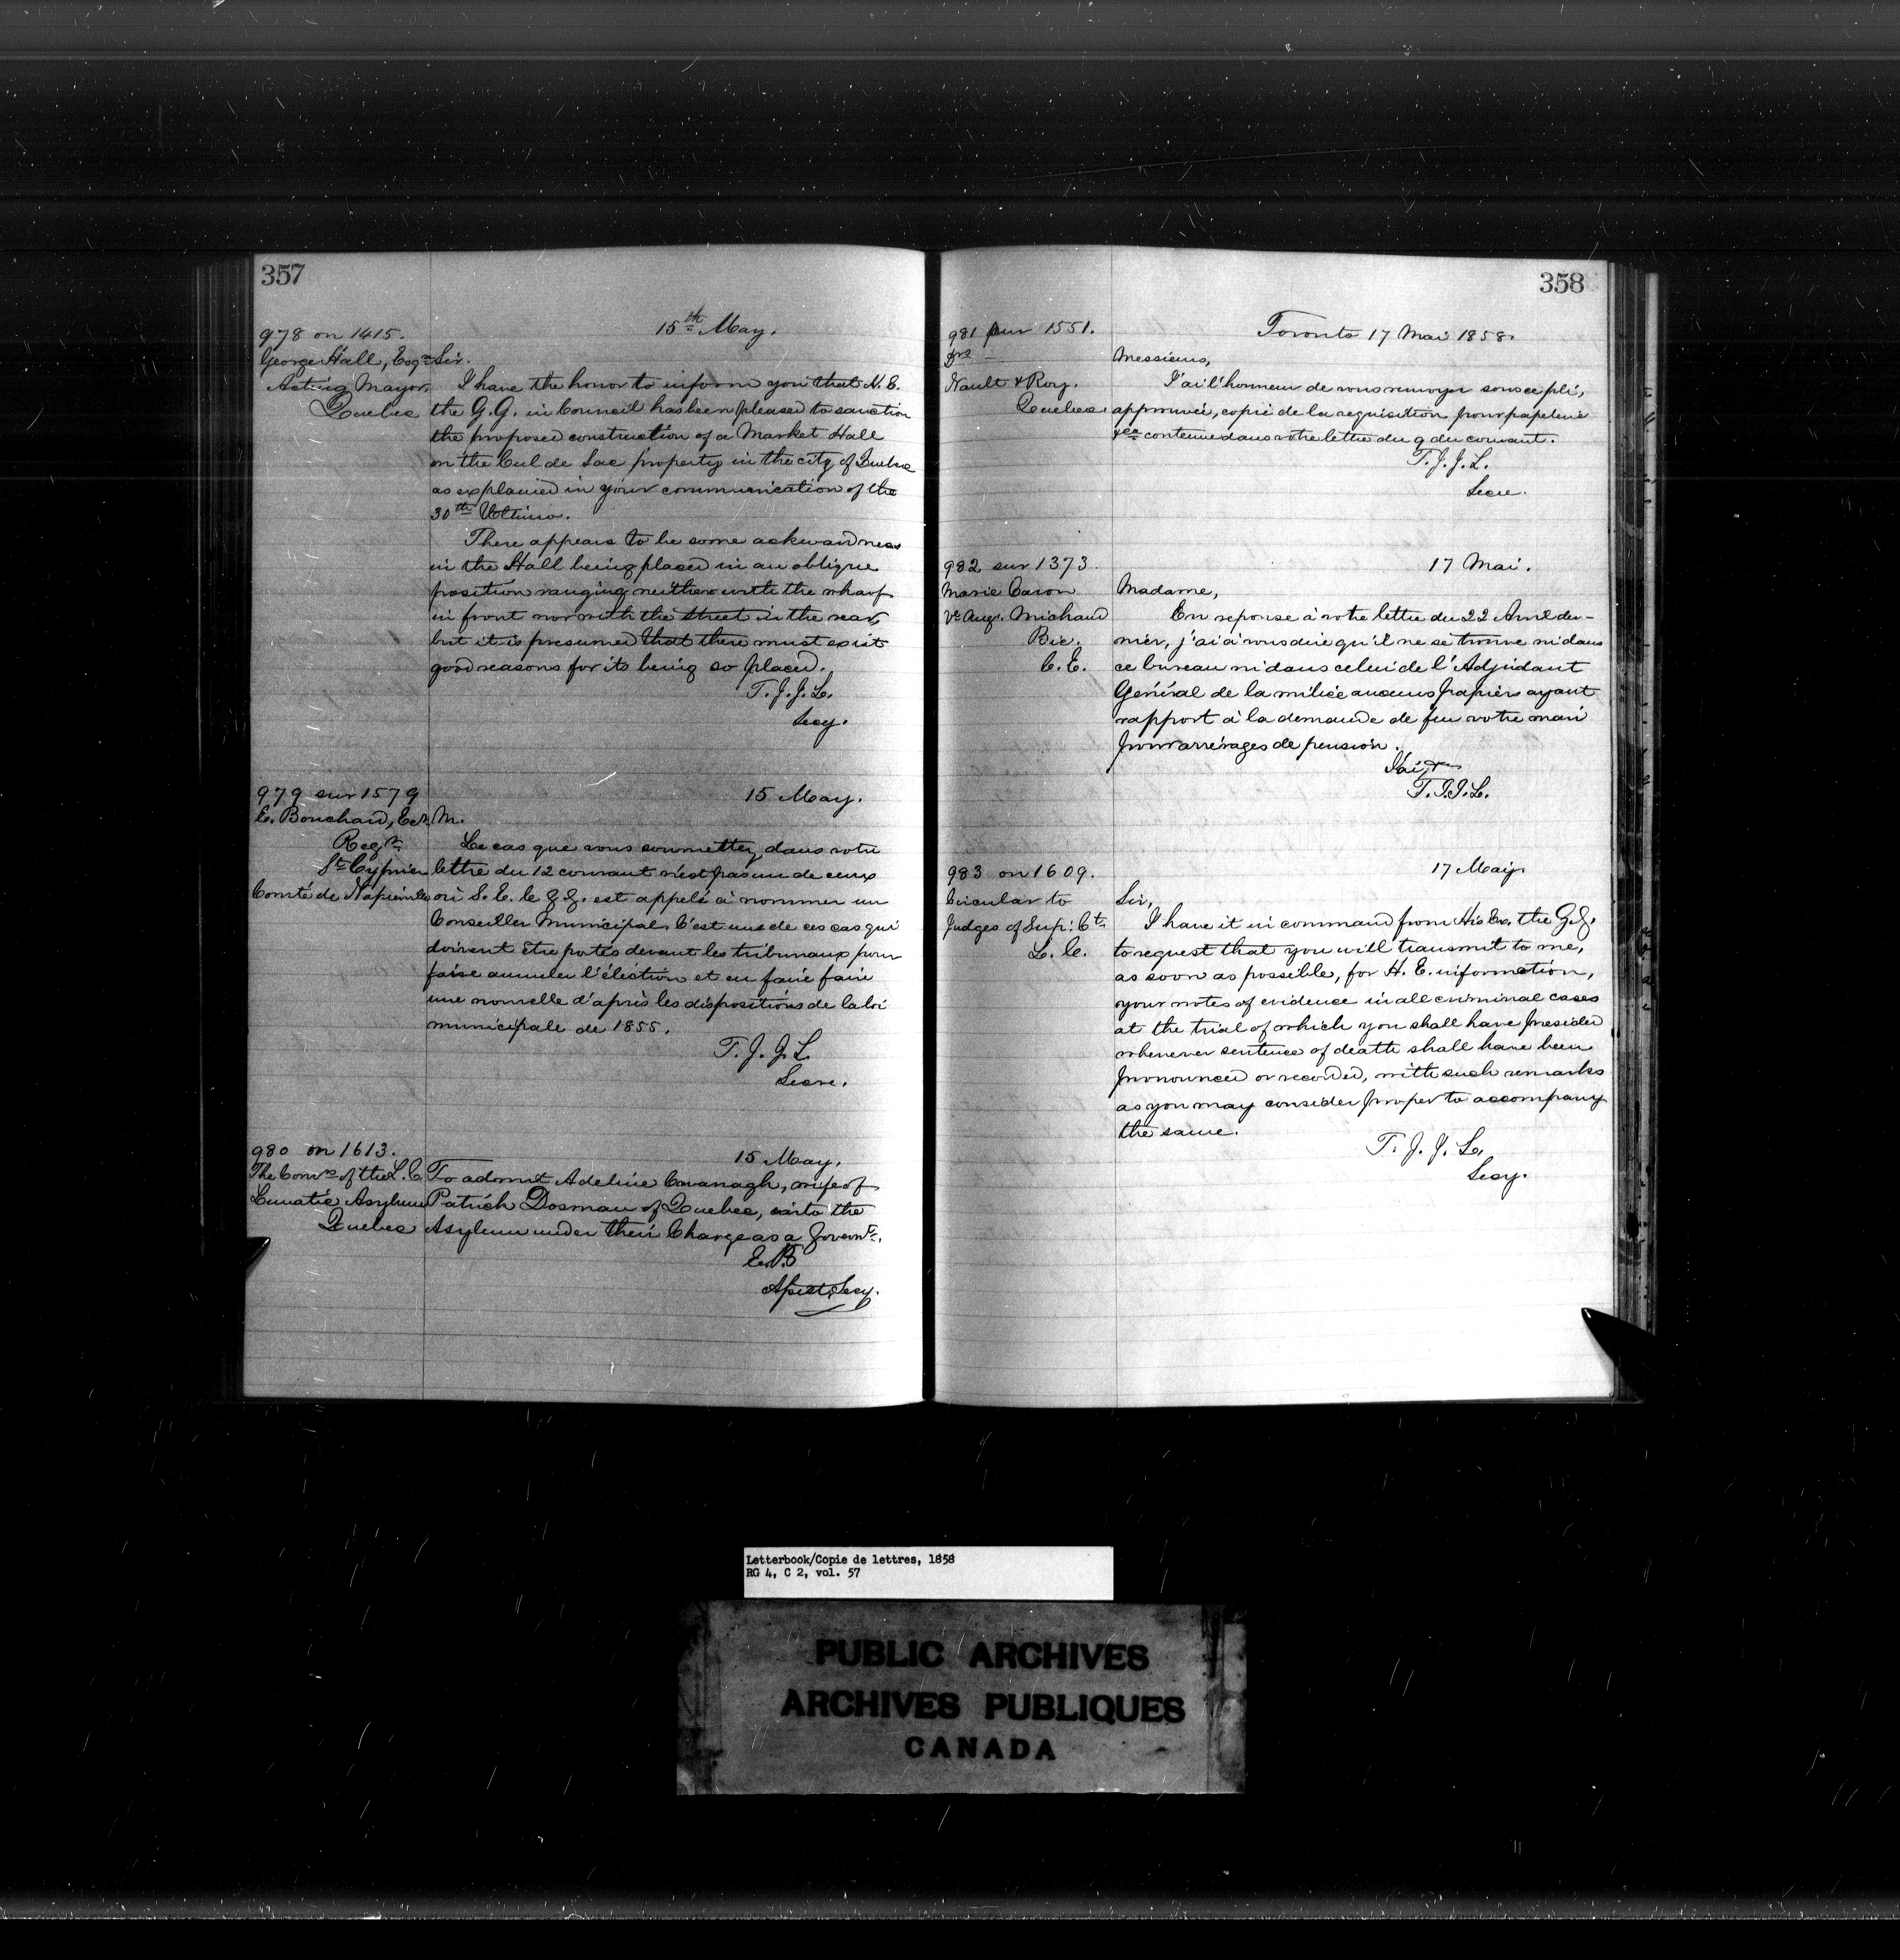 357
15th May.
978 on 1415.
George Hall, Esqre
Acting Mayor,
Quebec
Sir.
I have the honor to inform you that H. E.
the G.G. in Council has been pleased to sanction
the proposed construction of a Market Hall
on the Cul de Sac property in the city of Quebec
as explained in your communication of the
30th Ultimo.
There appears to be some ackwardness
in the Hall being placed in an oblique
position ranging neither with the wharf
in front nor with the street in the rear,
but it is presumed that there must exist
good reasons for its being so placed.
T. J. J. L.
Secy.
979 sur 1579
15 May.
E. Bouchard, Ecr.
Regr.
St Cyprien
Comté de Napierville
M.
Le cas que vous soumettez dans votre
lettre du 12 courant n'est pas un de ceux
où S. E. le G.G. est appelé à nommer un
Conseiller Municipal. C'est un de ces cas qui
doivent être portés devant les tribunaux pour
faire annuler l'élection et en faire faire
une nouvelle d'après les dispositions de la loi
municipale de 1855.
T. J. J. L.
Secre.
980 on 1613.
15 May.
The Comrs of the L.C.
Lunatic Asylum
Quebec
To admit Adeline Cavanagh, wife of
Patrick Dosman of Quebec, into the
Asylum under their Charge as a Governt.
E. P.
Asst. Secy.
358
981 sur 1551.
Toronto 17 Mai 1858.
Drs
Nault & Roy.
Quebec.
Messieurs,
J'ai l'honneur de vous renvoyer sous ce pli,
approuvée, copie de la requisition pour papeterie
&ca contenue dans votre lettre du 9 du courant.
T. J. J. L.
Secre.
982 sur 1373.
17 Mai.
Marie Caron
Ve Aug. Michaud
Bic.
C. E.
Madame,
En reponse à votre lettre du 22 Avril der-
nier, j'ai à vous dire qu'il ne se trouve ni dans
ce bureau ni dans celui de l'Adjudant
Général de la milice aucuns papiers ayant
rapport à la demande de feu votre mari
pour arrérages de pension.
J'ai &c
T. J. J. L.
983 on 1609.
17 May.
Circular to
Judges of Sup: Ct.
L. C.
Sir,
I have it in command from His Ex. the G.G.
to request that you will transmit to me,
as soon as possible, for H. E. information,
your notes of evidence in all criminal cases
at the trial of which you shall have presided
whenever sentence of death shall have been
pronounced or recorded, with such remarks
as you may consider proper to accompany
the same.
T. J. J. L.
Secy.
Letterbook/Copie de lettres, 1858
RG 4, C 2, vol. 57
PUBLIC ARCHIVES
ARCHIVES PUBLIQUES
CANADA